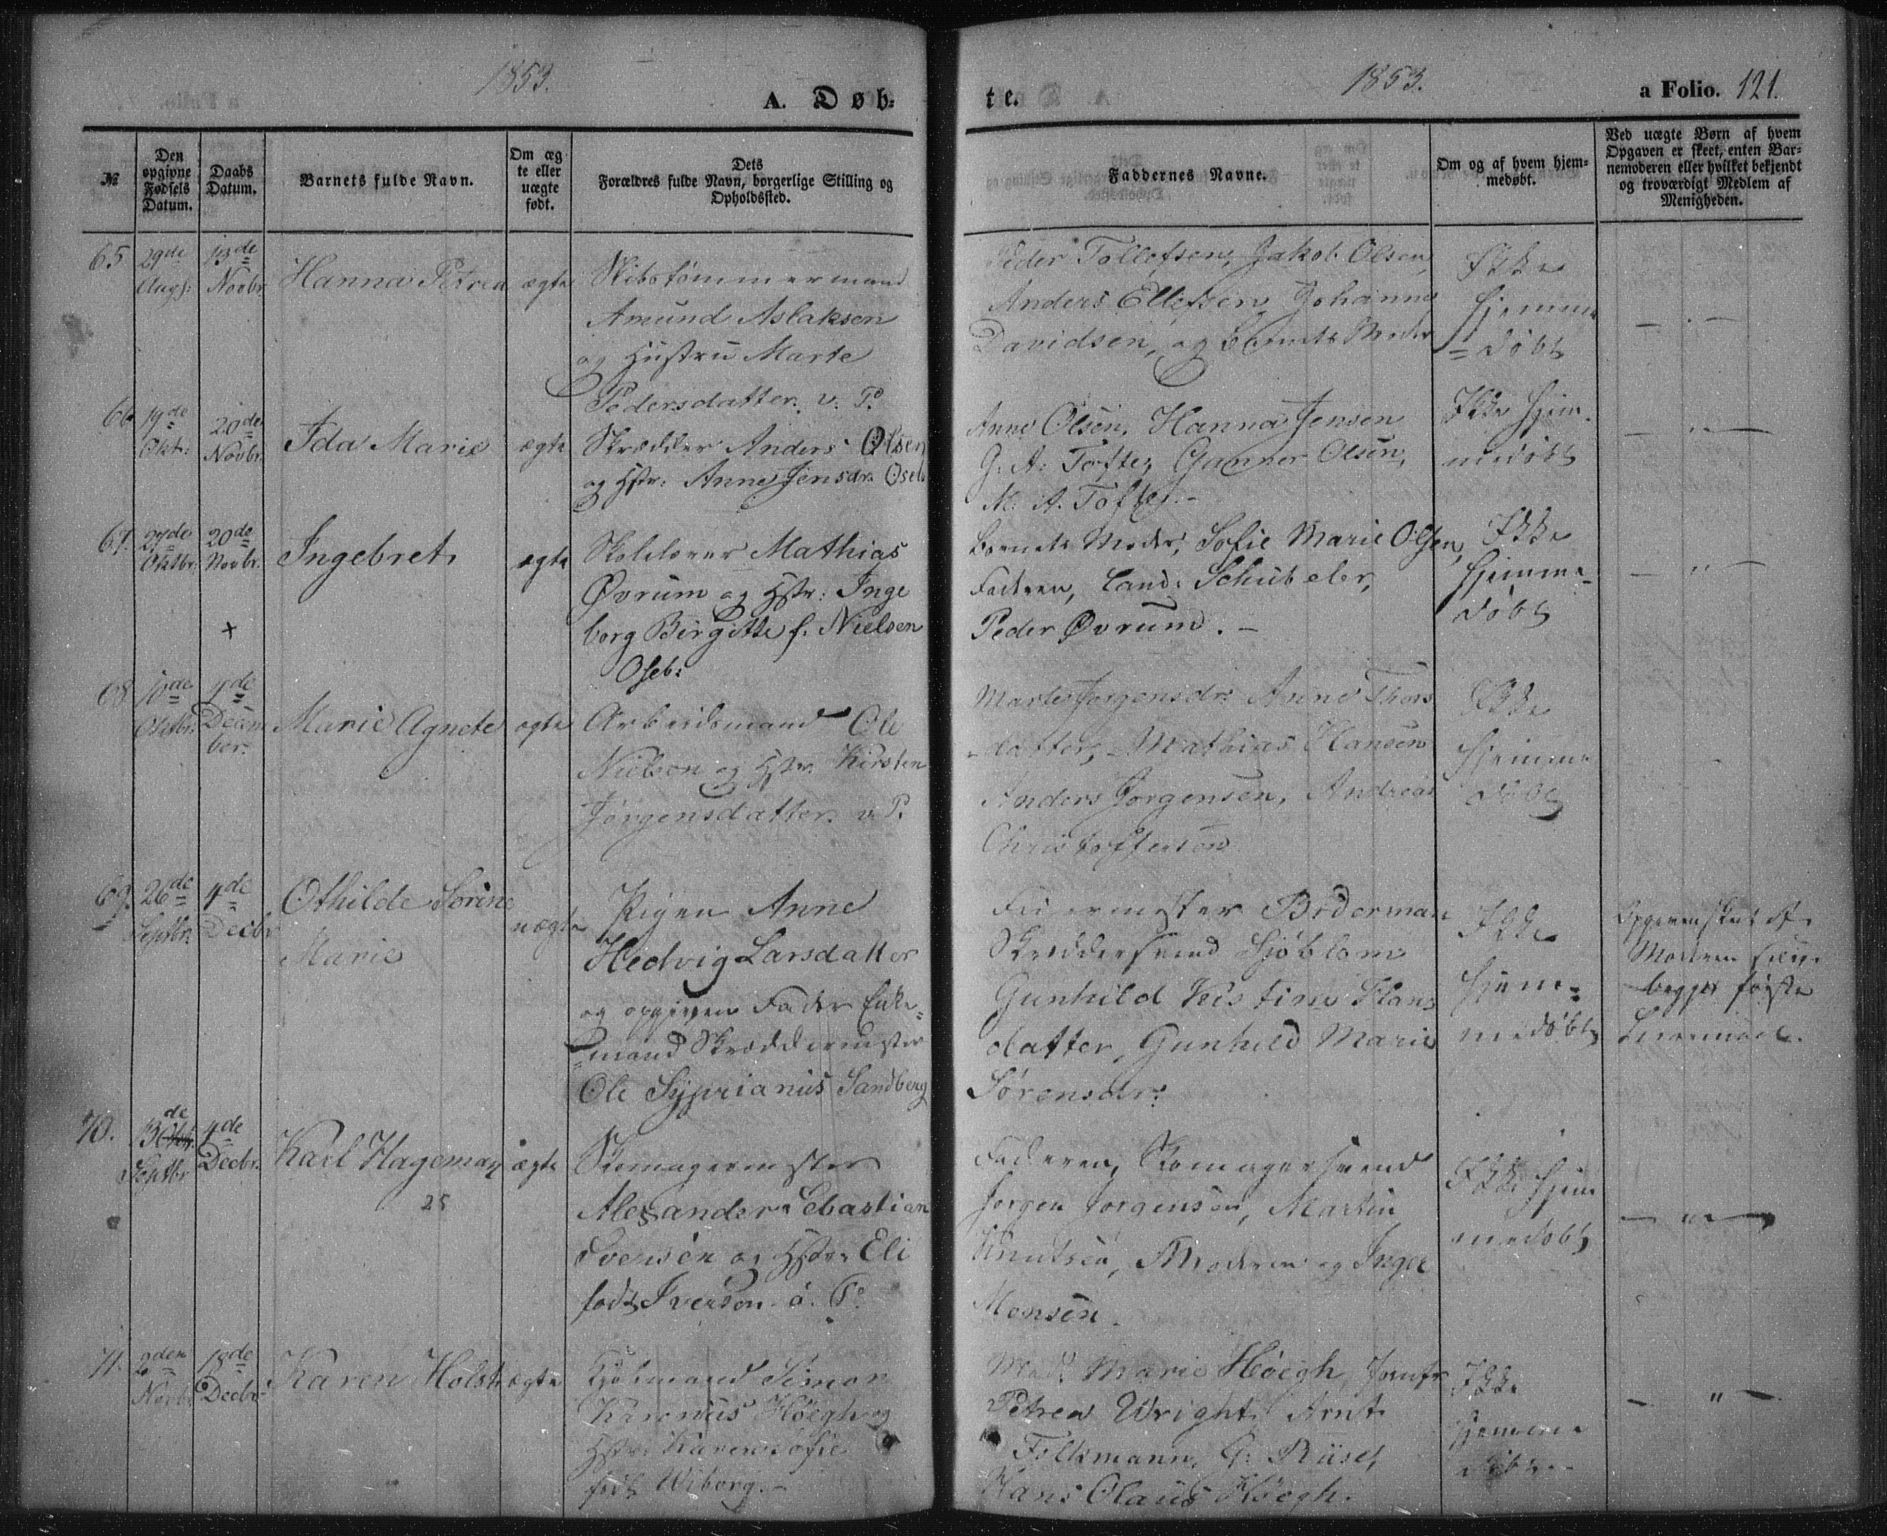 1853.
A. Døb-
te.
1853.
a Folio. 121.
№
Den opgivne Fødsels Datum.
Daabs Datum.
Barnets fulde Navn.
Om ægte eller uægte født.
Dets
Forældres fulde Navn, borgerlige Stilling og
Opholdssted.
Faddernes Navne.
Om og af hvem hjem-
medøbt.
Ved uægte Børn af hvem
Opgaven er skeet, enten Bar-
nemoderen eller hvilket bekjendt
og troværdigt Medlem af
Menigheden.
65
29de Aug:
13de Novbr
Hanna Petrea
ægte
Skibstømmermand
Amund Aslaksen
og Hustru Marte
Pedersdatter. v. P.
Peder Tollofsen, Jakob Olsen,
Anders Ellefsen, Johanne
Davidsen, og Barnets Moder
Ikke
hjemme
= døbt
66
19de Okt:
20de Novbr.
Ida Marie
ægte
Skrædder Anders Olsen
og Hstr: Anne Jensdr. Oseb.
Anne Olsen, Hanna Jensen
G. A. Tofte, Gunner Olsen,
M. A. Tofte. -
Ikke hjem-
medøbt
- " -
67.
27de Oktbr.
20de Novbr.
Ingebret
ægte
Skolelærer Mathias
Øvrum og Hstr: Inge
borg Birgitte f. Nielsen
Oseb:
Barnets Moder, Sofie Marie Olsen,
Faderen, Cand: Schubeler,
Peder Øvrum. -
Ikke
hjemme-
døbt
- " -
68
10de Oktbr.
4de Decem
ber.
Marie Agnete
ægte
Arbeidsmand Ole
Nielsen og Hstr. Kirsten
Jørgensdatter. v. P.
Marte Jørgensdr: Anne Thors
-datter, Mathias Hansen
Anders Jørgensen, Andreas
Christoffersen
Ikke
hjemme
døbt
-
69.
26de Septbr.
4de Decbr
Othilde Sørine
Marie
uægte
Pigen Anne
Hedvig Larsdatter
og opgiven Fader Enke-
mand Skræddermester
Ole Syprianus Sandberg
Farvermester Biderman
Skræddersvend Sjöblom
Gunhild Kristine Hans
datter, Gunhild Marie
Sørensdr:
Ikke
hjem-
medøbt
Opgaven skeet af
Moderen
begges første
Leiermaal.
70.
13de Septbr
4de Decbr.
Karl Hageman
25
ægte
Skomagermester
Alexander Sebastian
Iversen og Hstr. Eli
født Iverson ø. P.
Faderen, Skomagersvend
Jørgen Jørgensen, Martin
Knutsen, Moderen og Inger
Monsen.
Ikke hjem
medøbt
- " -
71.
2den Novbr
18de Decbr.
Karen Holst
ægte
Kjøbmand Simon
Karenius Høegh og
Hstr: Karen Sofie
født Wiborg. -
Mad: Marie Høegh, Jomfr
Petrea Wright, Arnt
Folkmann, G. Riise,
Hans Olaus Høegh.
Ikke
hjemme
døbt. -
- " -